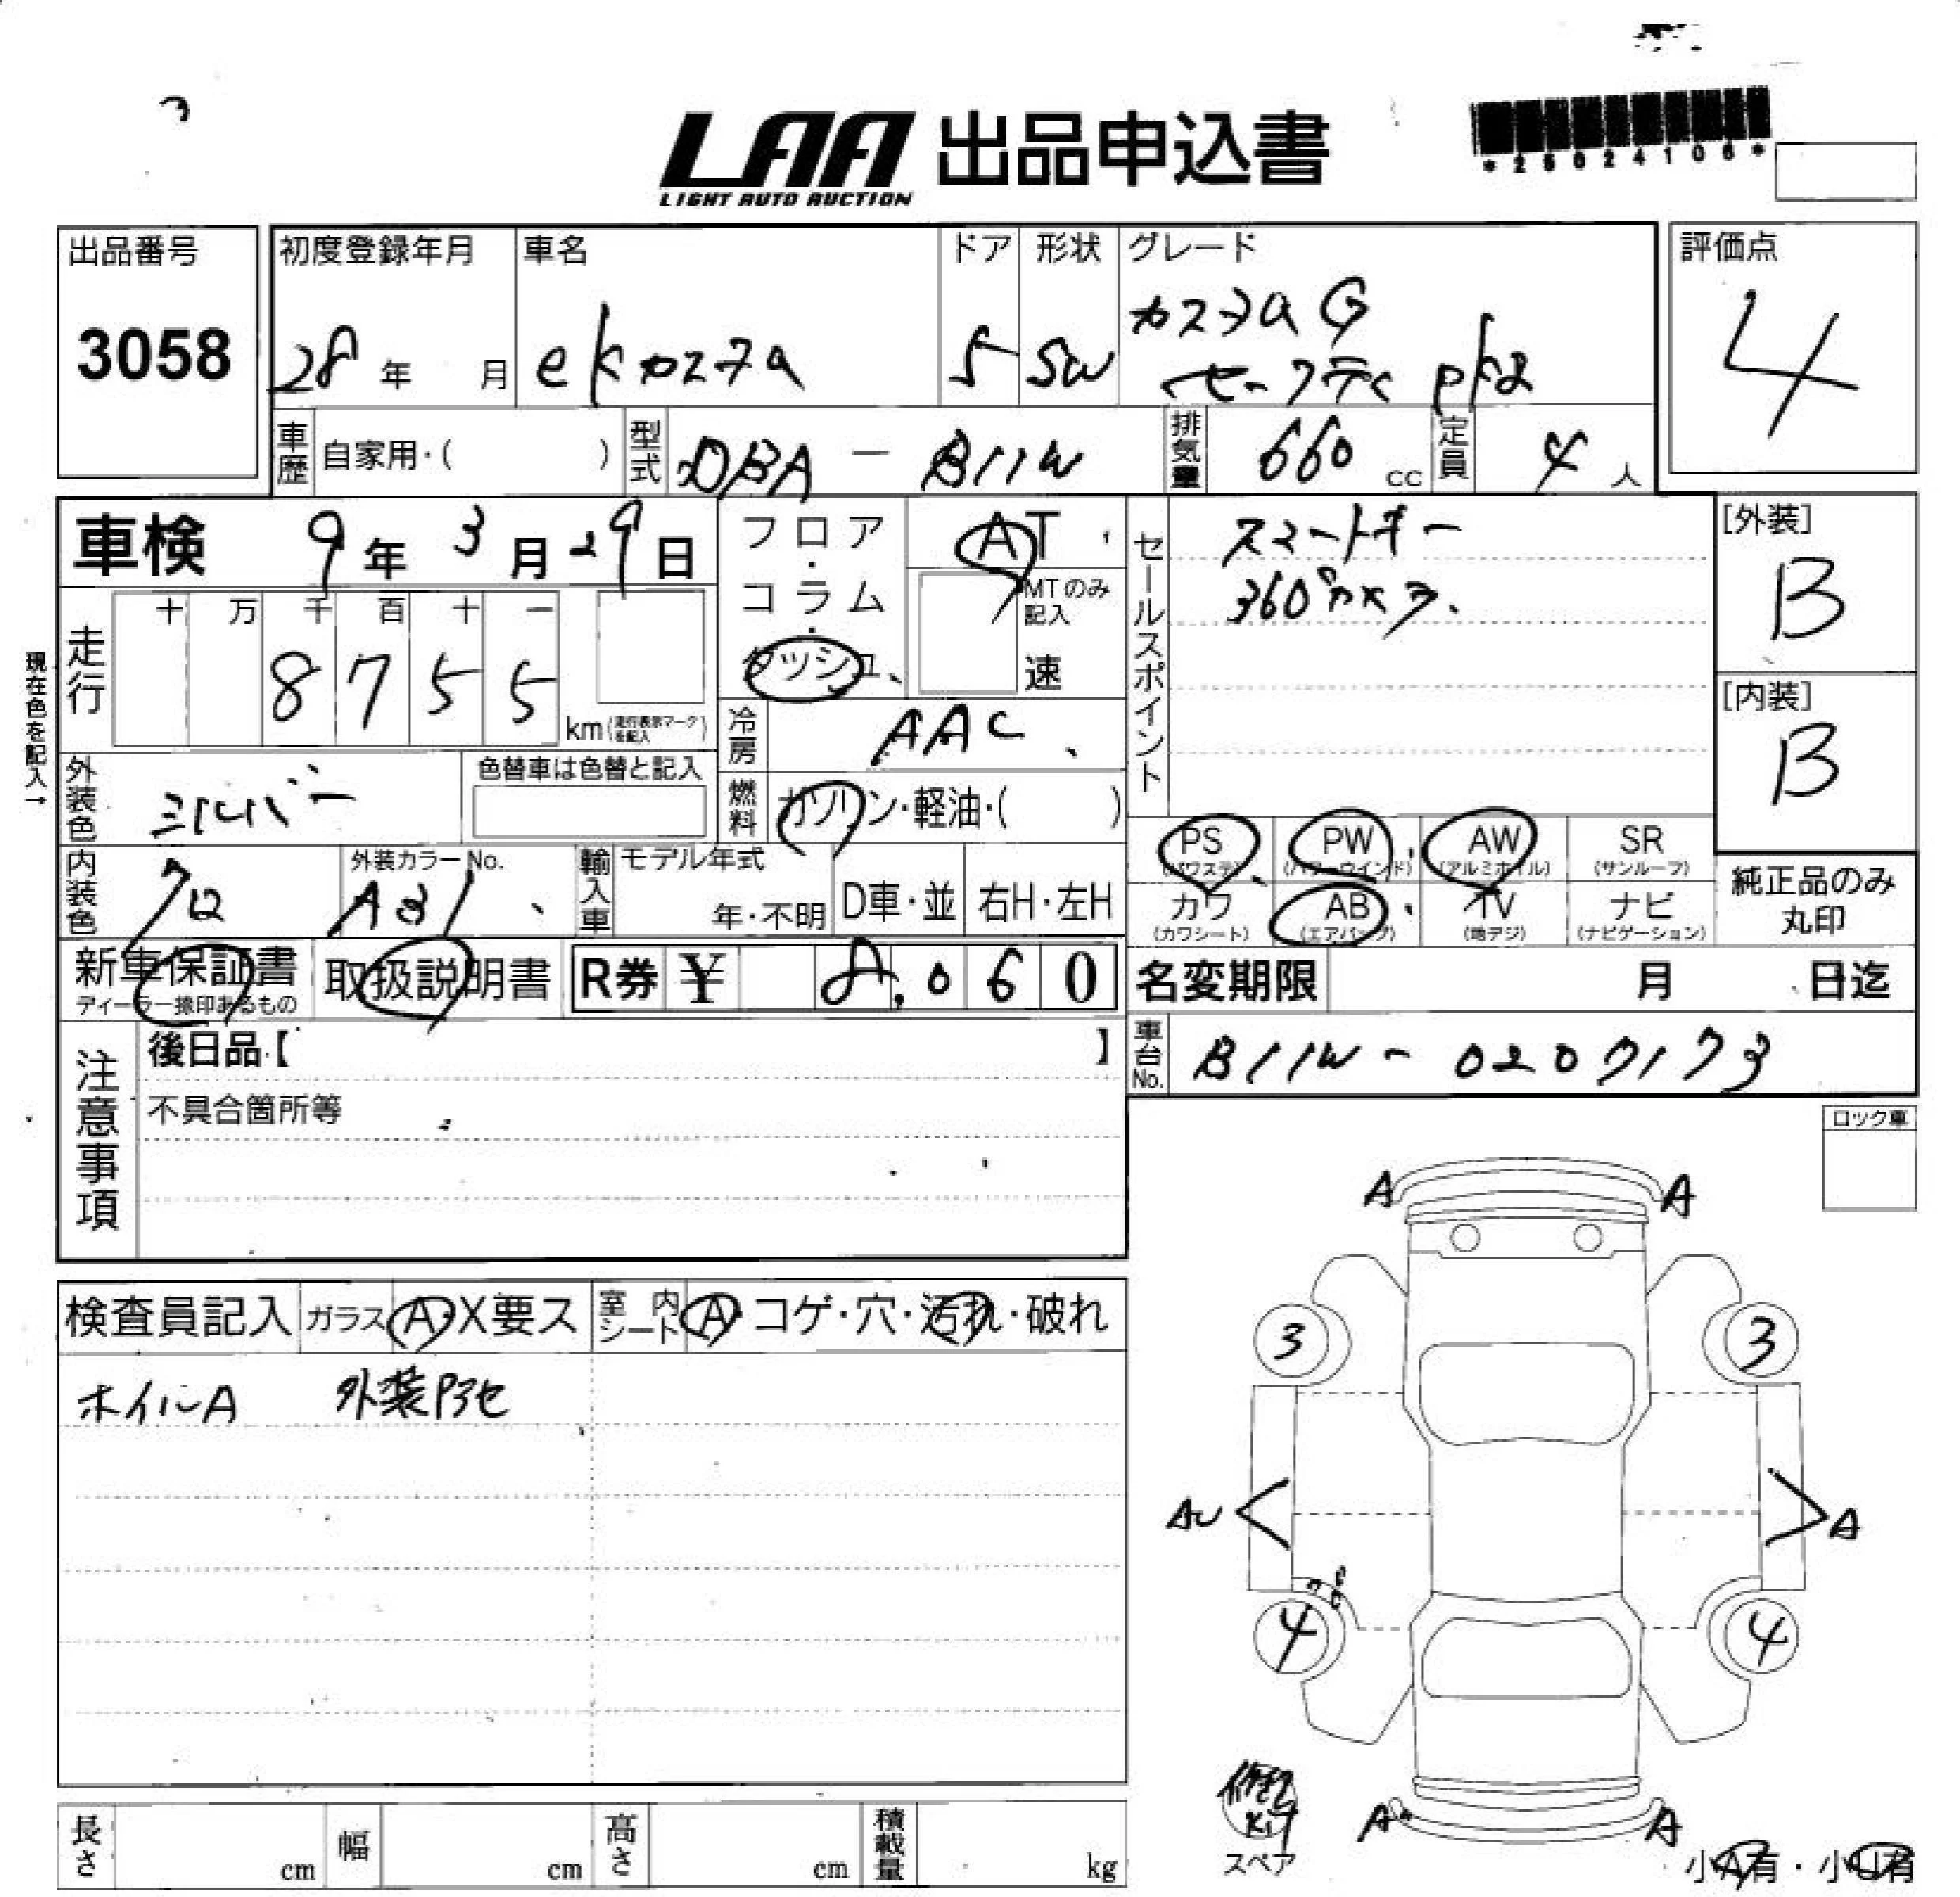 LAA 出品申込書
LIGHT AUTO AUCTION
*25024106*
出品番号
3058
初度登録年月
28 年 月
車名
ekカスタム
ドア
5
形状
SW
グレード
カスタムG
セーフティpkg
評価点
4
車歴 自家用・( )
型式 DBA - B11W
排気量 660 cc
定員 4 人
車検 9年 3月 29日
フロア・コラム・ダッシュ
AT
MTのみ記入
速
セールスポイント
スマートキー
360°カメラ
[外装]
B
[内装]
B
現在色を記入→
走行
十 万 千 百 十 一
8 7 5 5
km(走行表示マークを記入)
冷房 AAC
外装色 シルバー
色替車は色替と記入
燃料 ガソリン・軽油・( )
PS (パワステ)
PW (パワーウインド)
AW (アルミホイル)
SR (サンルーフ)
カワ (カワシート)
AB (エアバック)
TV (地デジ)
ナビ (ナビゲーション)
純正品のみ丸印
内装色 クロ
外装カラーNo.
A31
輸入車 モデル年式
年・不明
D車・並
右H・左H
新車保証書
ディーラー捺印あるもの
取扱説明書
R券 ¥ 8,060
名変期限 月 日迄
車台No. B11W - 0207173
注意事項
後日品【 】
不具合箇所等
ロック車
検査員記入
ガラス A・X要ス
室内シート A・コゲ・穴・汚れ・破れ
ホイルA 外装アセ
A A
3 3
AU A
4 4
A A
修理Kit
スペア
小A有・小U有
長さ cm
幅 cm
高さ cm
積載量 kg